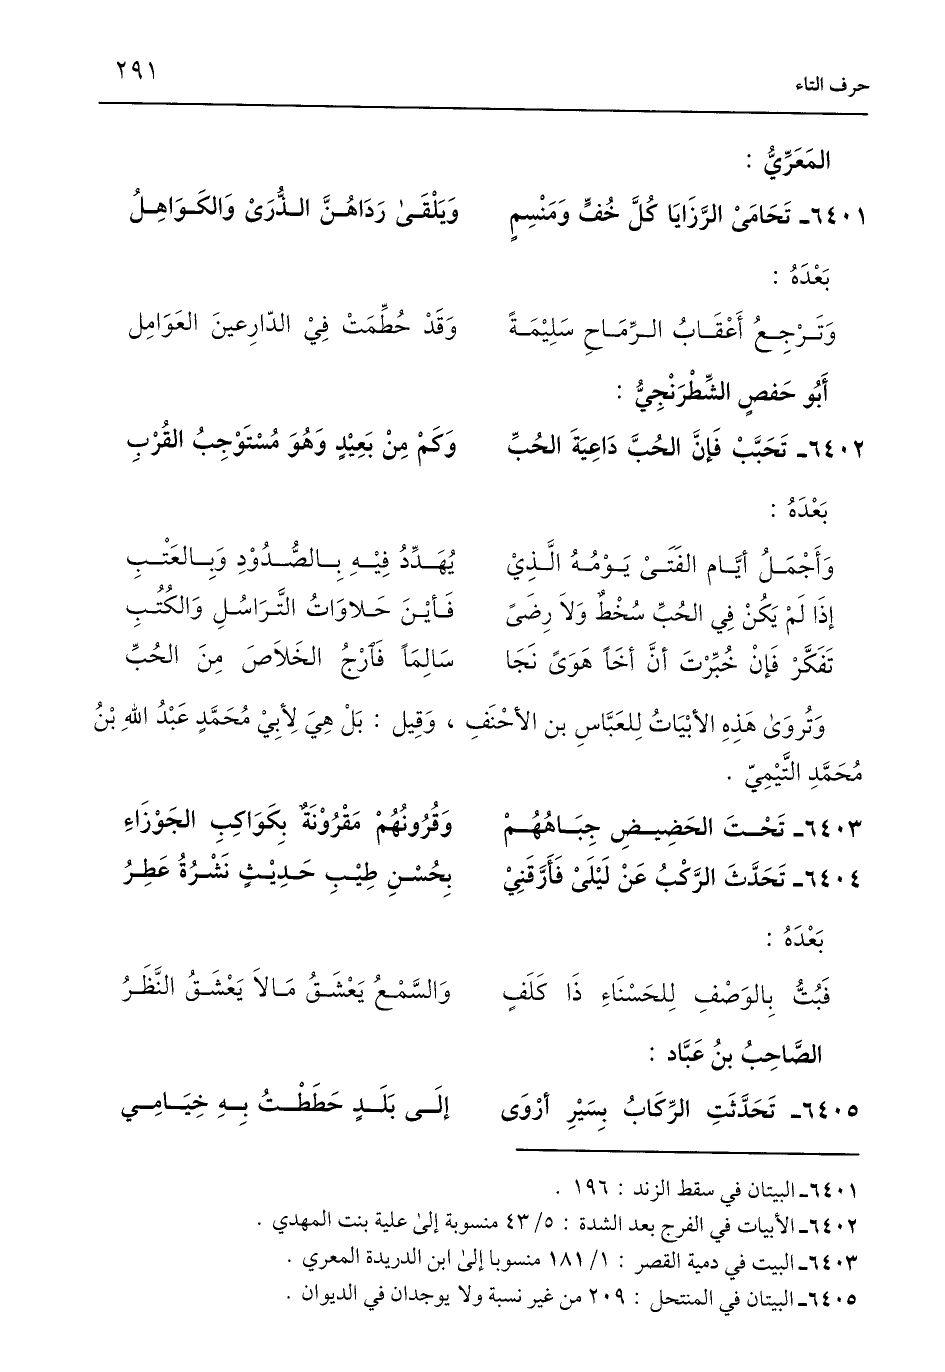 حرف التاء ٢٩١
المَعَرِّيُّ :
٦٤٠١ـ تَحَامَىْ الرَّزَايَا كُلَّ خُفٍّ وَمَنْسِمٍ وَيَلْقَىٰ رَدَاهُنَّ الذُّرَىْ وَالكَوَاهِلُ
بَعْدَهُ :
وَتَرْجِعُ أَعْقَابُ الرِّمَاحِ سَلِيْمَةً وَقَدْ حُطِّمَتْ فِيْ الدّارِعينَ العَوَامِل
أَبُو حَفصٍ الشِّطْرَنْجِيُّ :
٦٤٠٢ـ تَحَبَّبْ فَإِنَّ الحُبَّ دَاعِيَةَ الحُبِّ وَكَمْ مِنْ بَعِيْدٍ وَهُوَ مُسْتَوْجِبُ القُرْبِ
بَعْدَهُ :
وَأَجْمَلُ أيَّام الفَتَىْ يَوْمُهُ الَّذِيْ يُهَدِّدُ فِيْهِ بِالصُّدُوْدِ وَبِالعَتْبِ
إذَا لَمْ يَكُنْ فِي الحُبِّ سُخْطٌ وَلاَ رِضَىً فَأيْنَ حَلاوَاتُ التَّرَاسُلِ وَالكُتُبِ
تَفَكَّرْ فَإِنْ خُبِّرْتَ أنَّ أخَاً هَوَىً نَجَا سَالِمَاً فَآرْجُ الخَلاَصَ مِنَ الحُبِّ
وَتُروَىٰ هَذِهِ الأبْيَاتُ لِلعَبَّاسِ بن الأحْنَفِ ، وَقِيل : بَلْ هِيَ لِأبِيْ مُحَمَّدٍ عَبْدُ اللهِ بْنُ
مُحَمَّدِ التَّيْمِيّ .
٦٤٠٣ـ تَحْتَ الحَضِيضِ جِبَاهُهُمْ وَقُرونُهُمْ مَقْرُوْنَةٌ بِكَوَاكِبِ الجَوْزَاءِ
٦٤٠٤ـ تَحَدَّثَ الرَّكْبُ عَنْ لَيْلَىْ فَأَرَّقَنِيْ بِحُسْنِ طِيْبِ حَدِيْثٍ نَشْرُهُ عَطِرُ
بَعْدَهُ :
فَبُتُّ بِالوَصْفِ لِلحَسْنَاءِ ذَا كَلَفٍ وَالسَّمْعُ يَعْشَقُ مَالاَ يَعْشَقُ النَّظَرُ
الصَّاحِبُ بنُ عَبَّاد :
٦٤٠٥ـ تَحَدَّثَتِ الرِّكَابُ بِسَيْرِ أرْوَى إلَى بَلَدٍ حَطَطْتُ بِهِ خِيَامِي
٦٤٠١ـ البيتان في سقط الزند : ١٩٦ .
٦٤٠٢ـ الأبيات في الفرج بعد الشدة : ٥/ ٤٣ منسوبة إلىٰ علية بنت المهدي .
٦٤٠٣ـ البيت في دمية القصر : ١/ ١٨١ منسوبا إلىٰ ابن الدريدة المعري .
٦٤٠٥ـ البيتان في المنتحل : ٢٠٩ من غير نسبة ولا يوجدان في الديوان .